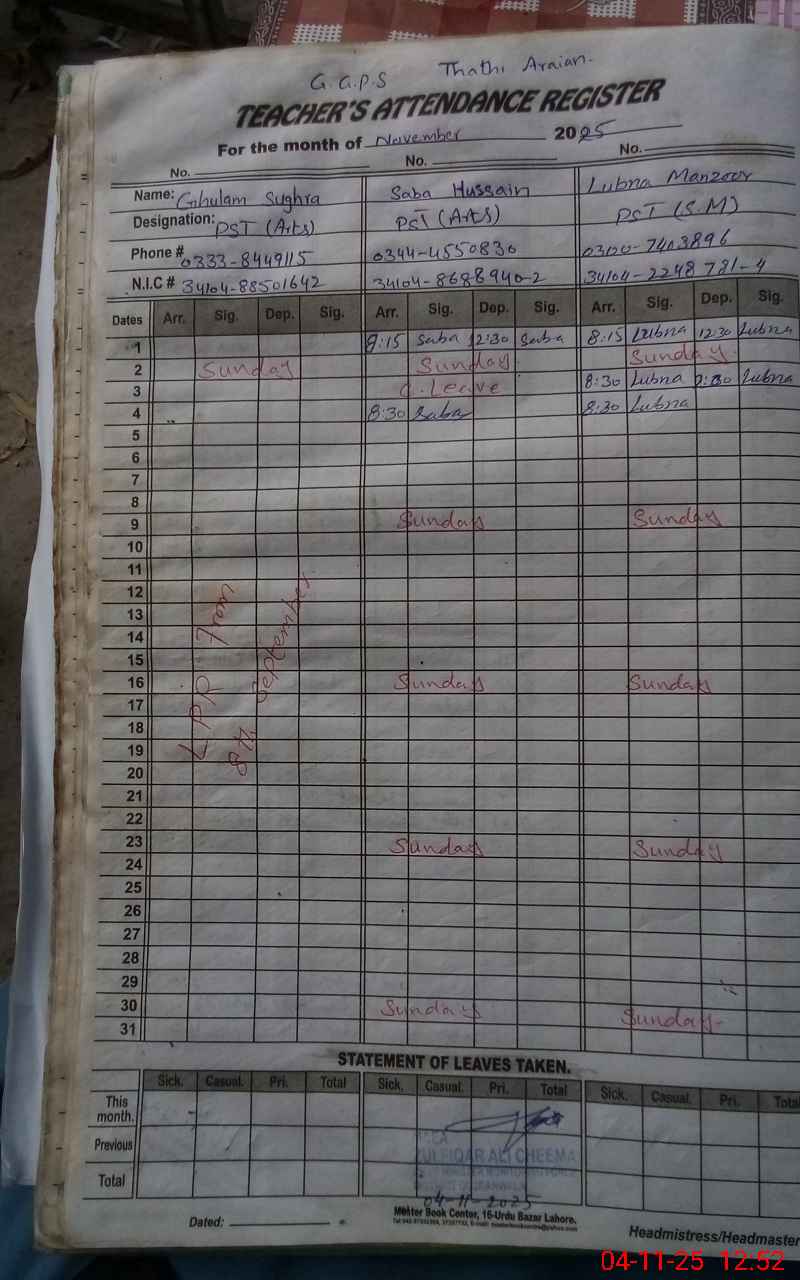 G.G.P.S Thathi Araian.
TEACHER'S ATTENDANCE REGISTER
For the month of November 2025
No. No. No.
Name: Ghulam Sughra Saba Hussain Lubna Manzoor
Designation: PST (Arts) PST (Arts) PST (S.M)
Phone # 0333-8449115 0344-4550830 0300-7403896
N.I.C # 34104-88501642 34104-8688940-2 34104-2248781-4
Dates Arr. Sig. Dep. Sig. Arr. Sig. Dep. Sig. Arr. Sig. Dep. Sig.
1 8:15 Saba 12:30 Saba 8:15 Lubna 12:30 Lubna
2 Sunday Sunday Sunday
3 C.Leave 8:30 Lubna Lubna
4 8:30 Saba 8:30 Lubna
5
6
7
8
9 Sunday Sunday
10
11
12
13
14
15
16 Sunday Sunday
17
18
19
20
21
22
23 Sunday Sunday
24
25
26
27
28
29
30 Sunday Sunday
31
LPR From
8th September
STATEMENT OF LEAVES TAKEN.
Sick. Casual. Pri. Total Sick. Casual. Pri. Total Sick. Casual. Pri. Total
This month.
Previous
Total
ZULFIQAR ALI CHEEMA
04-11-2025
Dated:
Mehter Book Center, 16-Urdu Bazar Lahore.
Headmistress/Headmaster
04-11-25 12:52